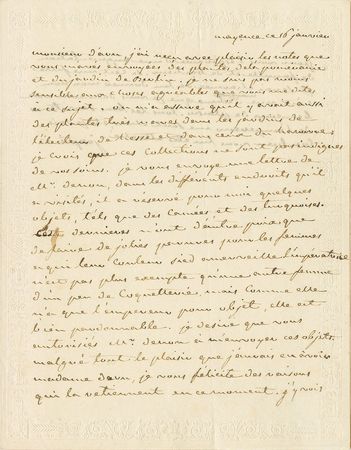 mayence ce 16 janvier
monsieur daru j'ai reçu avec plaisir les notes que
vous m'avés envoyées des plantes de la pomeranie
et du jardin de Berlin. je ne suis pas moins
sensible aux choses agréables que vous me dites
à ce sujet. on m'a assuré qu'il y avait aussi
des plantes très rares dans les jardins de
l'électeur de hesse et dans ceux du hanovre.
je crois que ces collections ne sont pas indignes
de vos soins. je vous envoye une lettre de
Mr. denon, dans les differents endroits qu'il
a visités, il a réservé pour moi quelques
objets, tels que des camées et des turquoises.
ces dernières n'ont d'autre prix que
de faire de jolies parures pour les femmes
à qui leur couleur sied à merveille. l'imperatrice
n'est pas plus exempte qu'une autre femme
d'un peu de coquetterie, mais comme elle
n'a que l'empereur pour objet, elle est
bien pardonnable. je désire que vous
autorisiés Mr. denon à m'envoyer ces objets.
malgré tout le plaisir que j'aurais eu à voir
madame daru, je vous félicite des raisons
qui la retiennent en ce moment. j'y vois